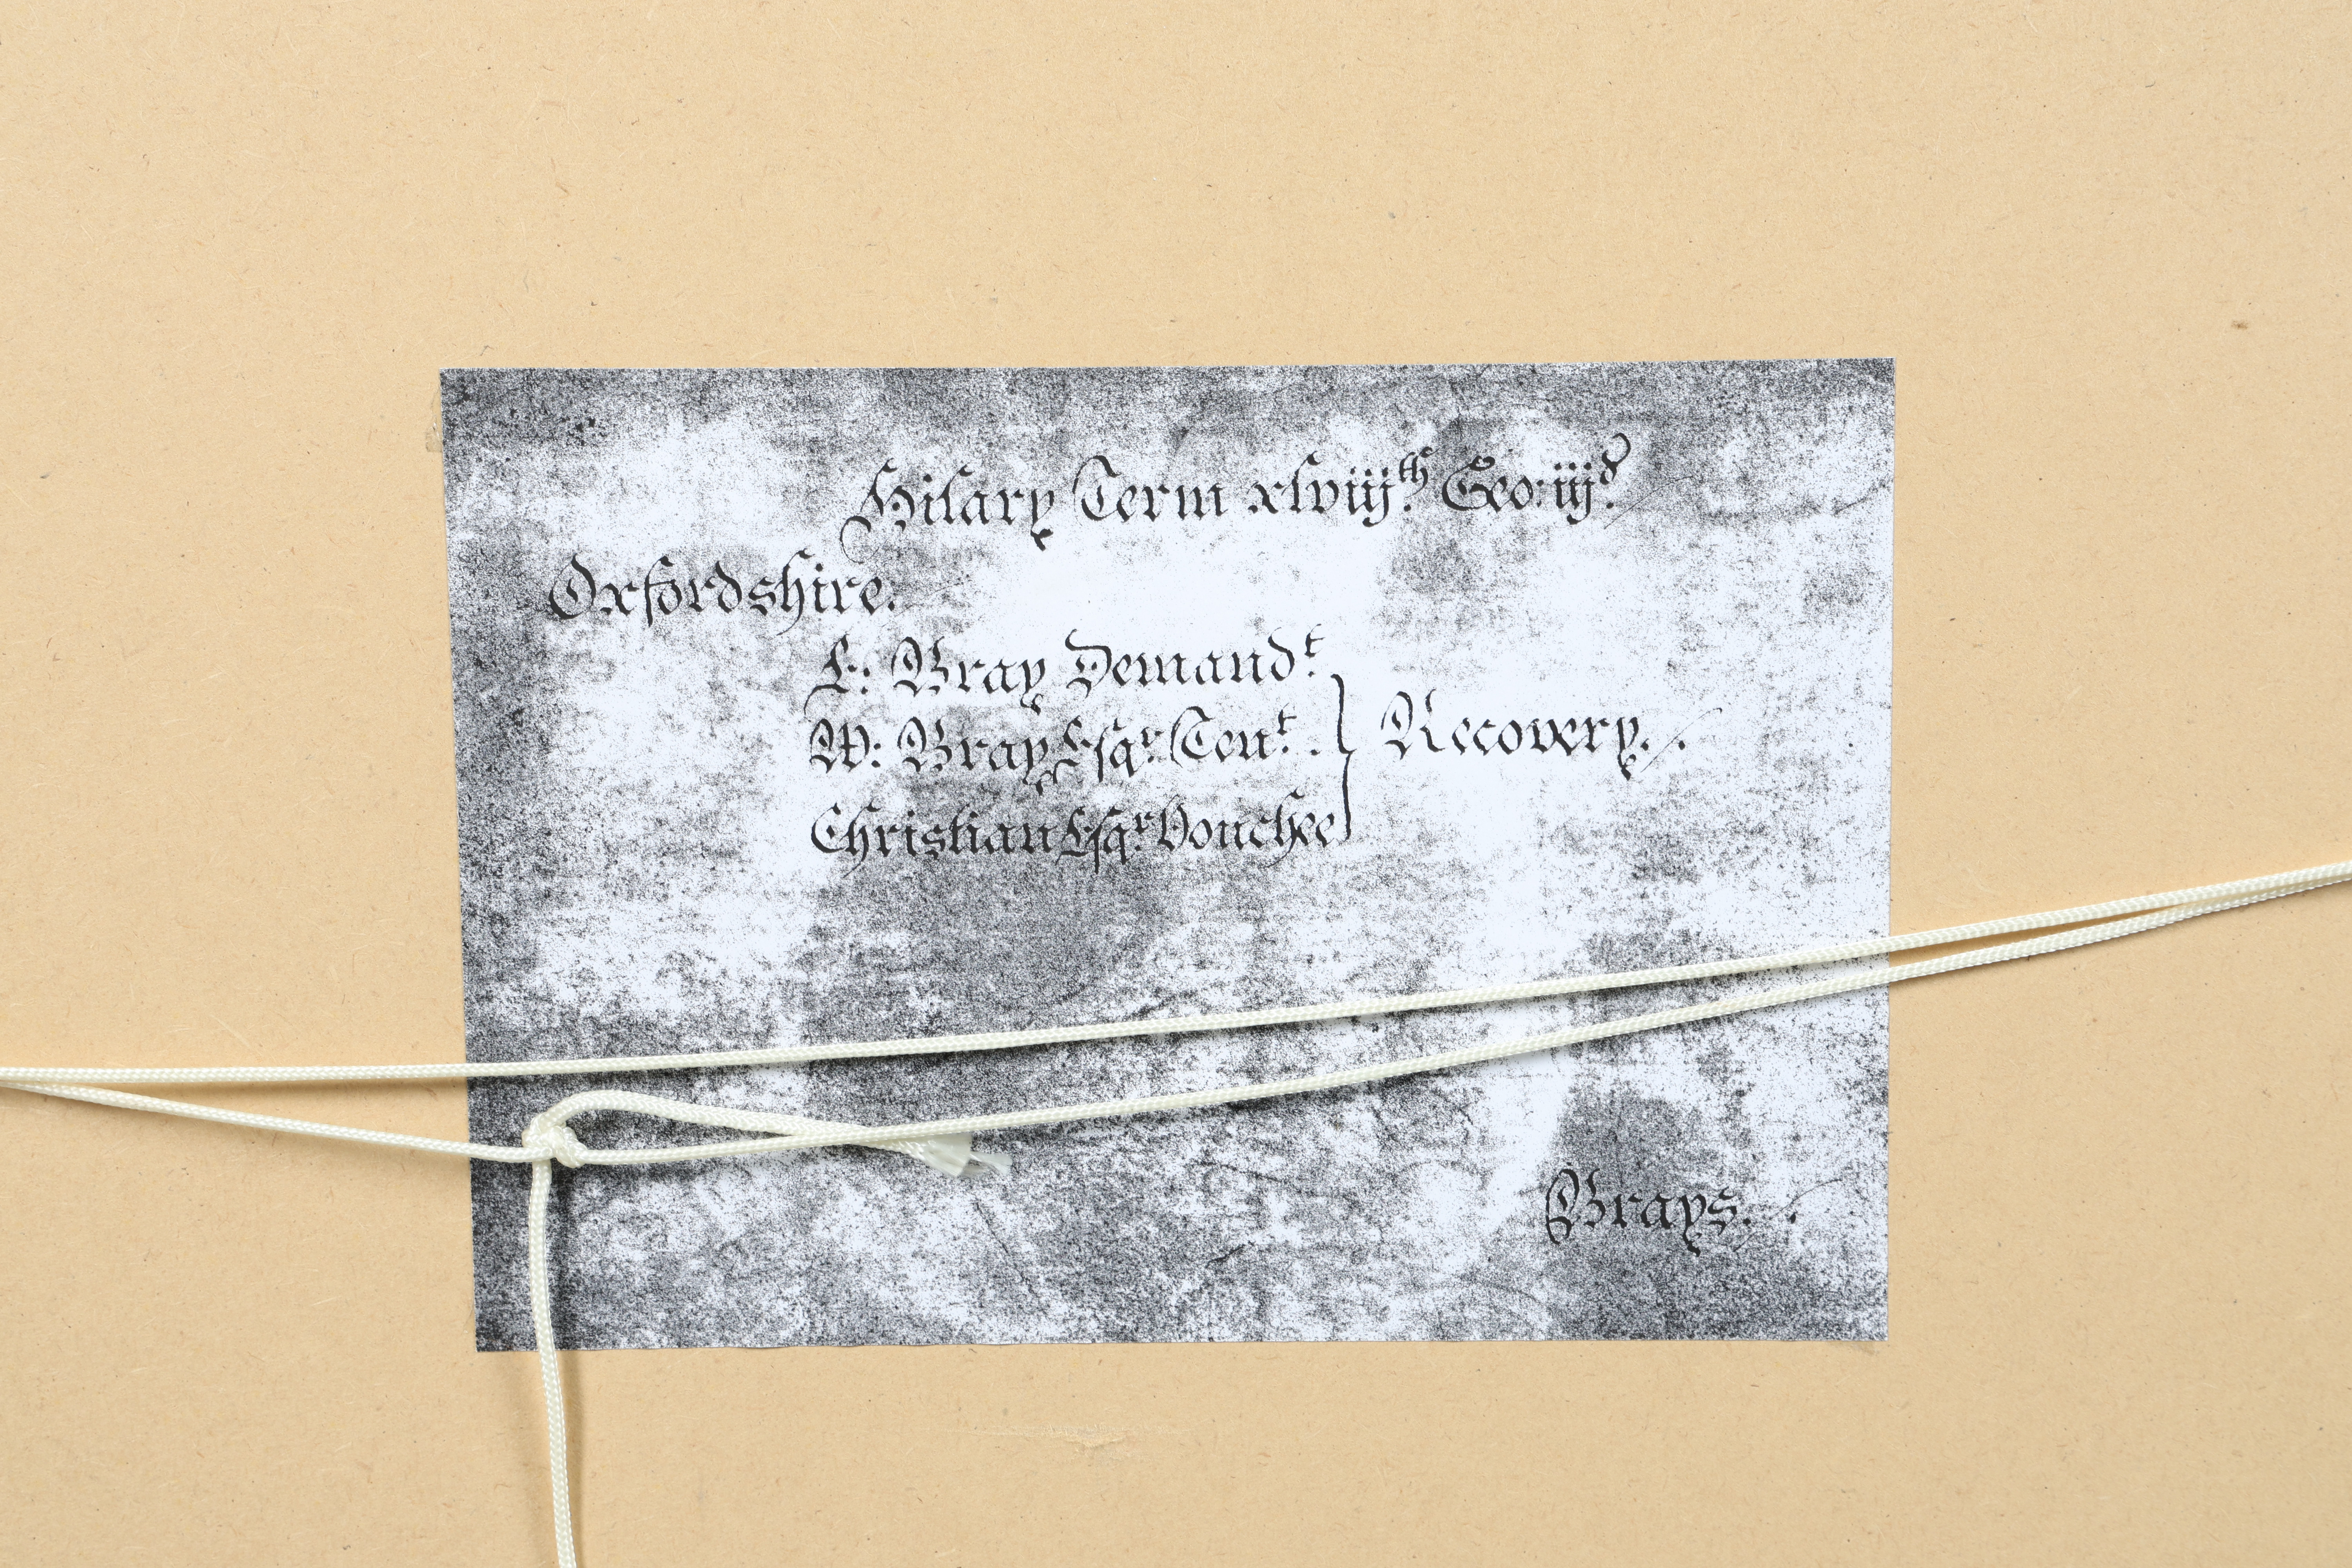 Hilary Term xlviijth. Geo: iijd.
Oxfordshire.
E: Bray Demandt.
W: Bray Esqr. Tent. } Recovery.
Christian Esqr. Vouchee
Brays.